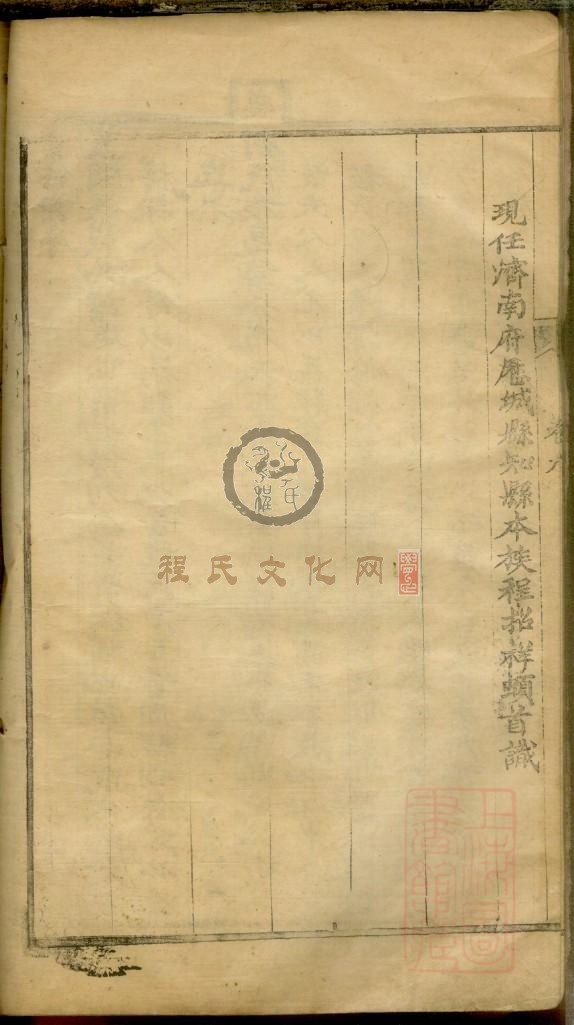 現任濟南府厯城縣知縣本族程招祥頓首識
卷六
程氏文化网
上海圖書館藏